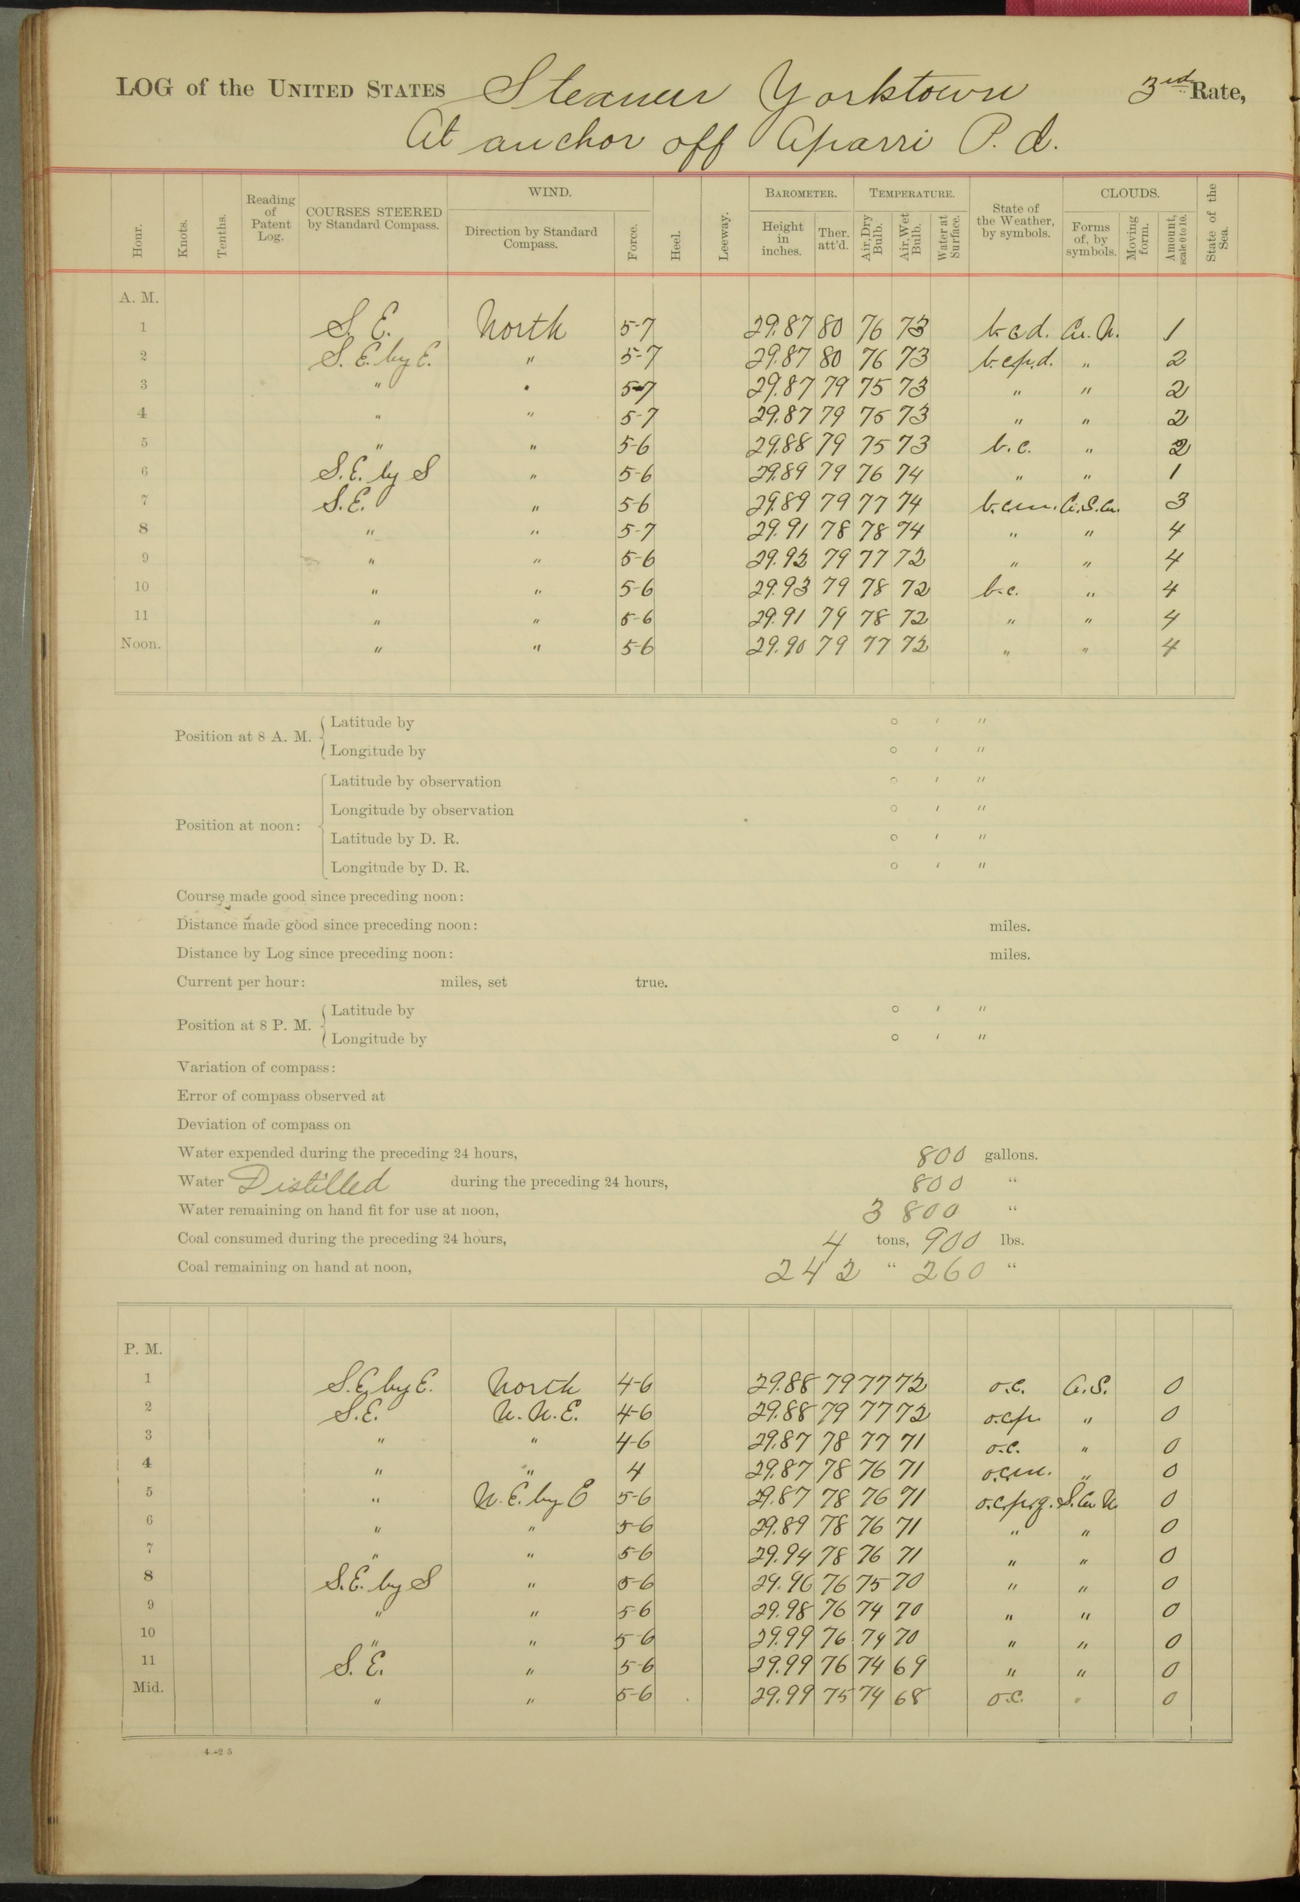 LOG of the UNITED STATES Steamer Yorktown 3rd Rate,
At anchor off Aparri P. I.
Hour. Knots. Tenths. Reading of Patent Log. COURSES STEERED by Standard Compass. WIND. Direction by Standard Compass. Force. Heel. Leeway. BAROMETER. Height in inches. Ther. att'd. TEMPERATURE. Air, Dry Bulb. Air, Wet Bulb. Water at Surface. State of the Weather, by symbols. CLOUDS. Forms of, by symbols. Moving form. Amount, scale 0 to 10. State of the Sea.
A. M.
1 S. E. North 5-7 29.87 80 76 73 b.c.d. Cu. N. 1
2 S. E. by E. " 5-7 29.87 80 76 73 b.c.p.d. " 2
3 " " 5-7 29.87 79 75 73 " " 2
4 " " 5-7 29.87 79 75 73 " " 2
5 " " 5-6 29.88 79 75 73 b.c. " 2
6 S.E. by S " 5-6 29.89 79 76 74 " " 1
7 S.E. " 5-6 29.89 79 77 74 b.c.m. C.S.Cu. 3
8 " " 5-7 29.91 78 78 74 " " 4
9 " " 5-6 29.92 79 77 72 " " 4
10 " " 5-6 29.93 79 78 72 b.c. " 4
11 " " 5-6 29.91 79 78 72 " " 4
Noon. " " 5-6 29.90 79 77 72 " " 4
Position at 8 A. M. { Latitude by ° ′ ″
Longitude by ° ′ ″
Position at noon: { Latitude by observation ° ′ ″
Longitude by observation ° ′ ″
Latitude by D. R. ° ′ ″
Longitude by D. R. ° ′ ″
Course made good since preceding noon:
Distance made good since preceding noon: miles.
Distance by Log since preceding noon: miles.
Current per hour: miles, set true.
Position at 8 P. M. { Latitude by ° ′ ″
Longitude by ° ′ ″
Variation of compass:
Error of compass observed at
Deviation of compass on
Water expended during the preceding 24 hours, 800 gallons.
Water Distilled during the preceding 24 hours, 800 "
Water remaining on hand fit for use at noon, 3 800 "
Coal consumed during the preceding 24 hours, 4 tons, 900 lbs.
Coal remaining on hand at noon, 242 " 260 "
P. M.
1 S.E. by E. North 4-6 29.88 79 77 72 o.c. C.S. 0
2 S.E. N. N. E. 4-6 29.88 79 77 72 o.c.p. " 0
3 " " 4-6 29.87 78 77 71 o.c. " 0
4 " " 4 29.87 78 76 71 o.c.m. " 0
5 " N. E. by E 5-6 29.87 78 76 71 o.c.p.q. S.Cu N 0
6 " " 5-6 29.89 78 76 71 " " 0
7 " " 5-6 29.94 78 76 71 " " 0
8 S.E. by S " 5-6 29.96 76 75 70 " " 0
9 " " 5-6 29.98 76 74 70 " " 0
10 " " 5-6 29.99 76 74 70 " " 0
11 S. E. " 5-6 29.99 76 74 69 " " 0
Mid. " " 5-6 29.99 75 74 68 o.c. " 0
4-25